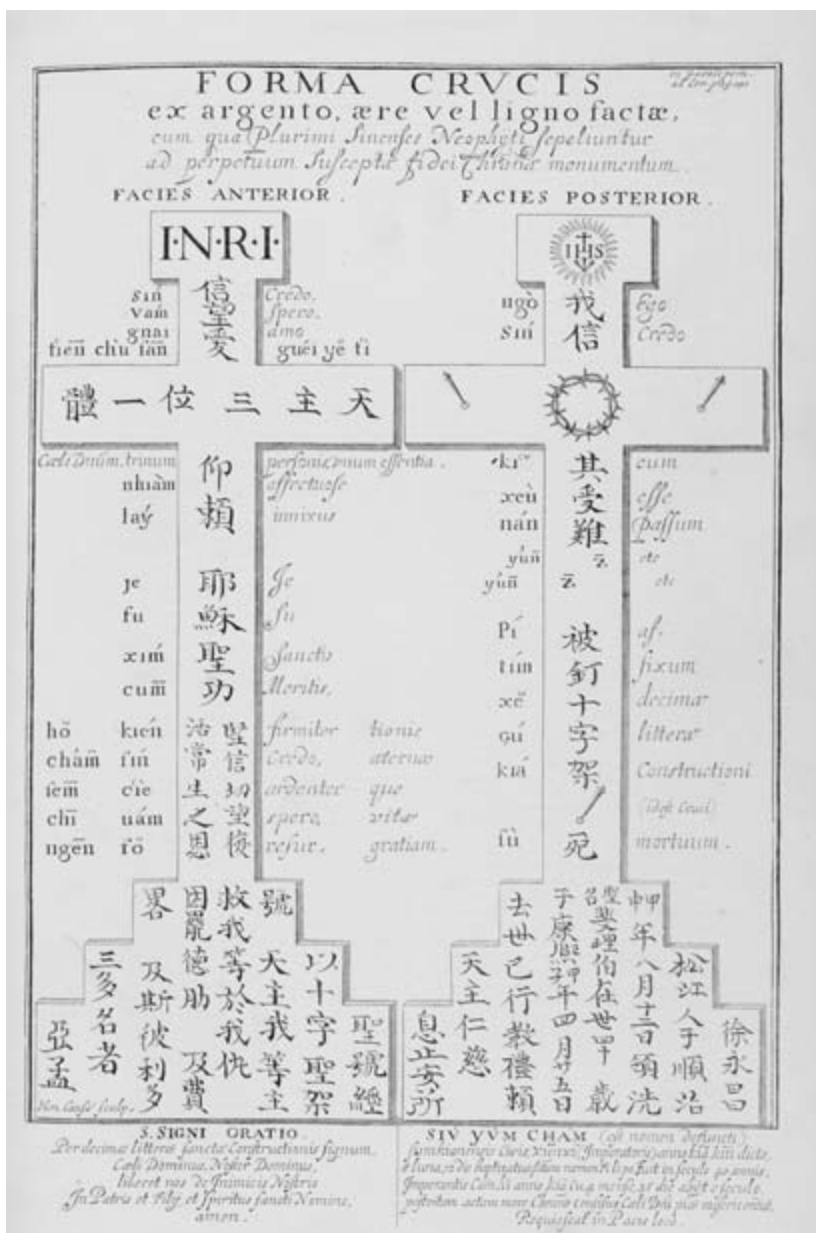 FORMA CRVCIS
ex argento, ære vel ligno factæ,
cum qua Plurimi Sinenses Neophyti sepeliuntur
ad perpetuum Susceptæ fidei monumentum.
FACIES ANTERIOR.
I·N·R·I·
sin 信 Credo.
vam 望 spero.
gnai 愛 amo
tien chu san guei ye ti
體一位三主天
Cæli trinum personis essentia.
nhiàm 仰 affectuose
laý 賴 innixus
je 耶 Je
fu 穌 Su
xim 聖 Sanctis
cum 功 Meritis,
hŏ kién 沽 堅 firmiter tionis
chám sin 常 信 Credo, æternæ
sem cie 生 切 ardenter que
chi uám 之 望 spero, vitæ
ngēn fŏ 恩 resur, gratiam.
聖號經
以十字聖架
號 天主我等主
救我等於我仇
因罷德肋 及費
畧 及斯彼利多
三多名者
亞孟
S. SIGNI ORATIO
Per decimæ litteræ sanctæ Constructionis signum,
Cæli Dominus, Noster Dominus,
liberet nos de Inimicis Nostris
In Patris et Filij et Spiritus sancti Nomine,
amen.
FACIES POSTERIOR.
IHS
ngò 我 Ego
sin 信 Credo
ki 其 eum
xeù 受 esse
nán 難 passum
yún etc
yún etc
Pí 被 af.
tim 釘 fixum
xĕ 十 decimæ
字 litteræ
kiá 架 Constructioni
sù 死 mortuum.
徐永昌
松江人于順治
甲申年八月十二日領洗
聖名斐理伯在世四十歲
于康熙甲子年四月廿五日
去世已行教禮賴
天主仁慈
息止安所
SIV YVM CHAM (est nomen defuncti)
Requiescat in Pacis loco.